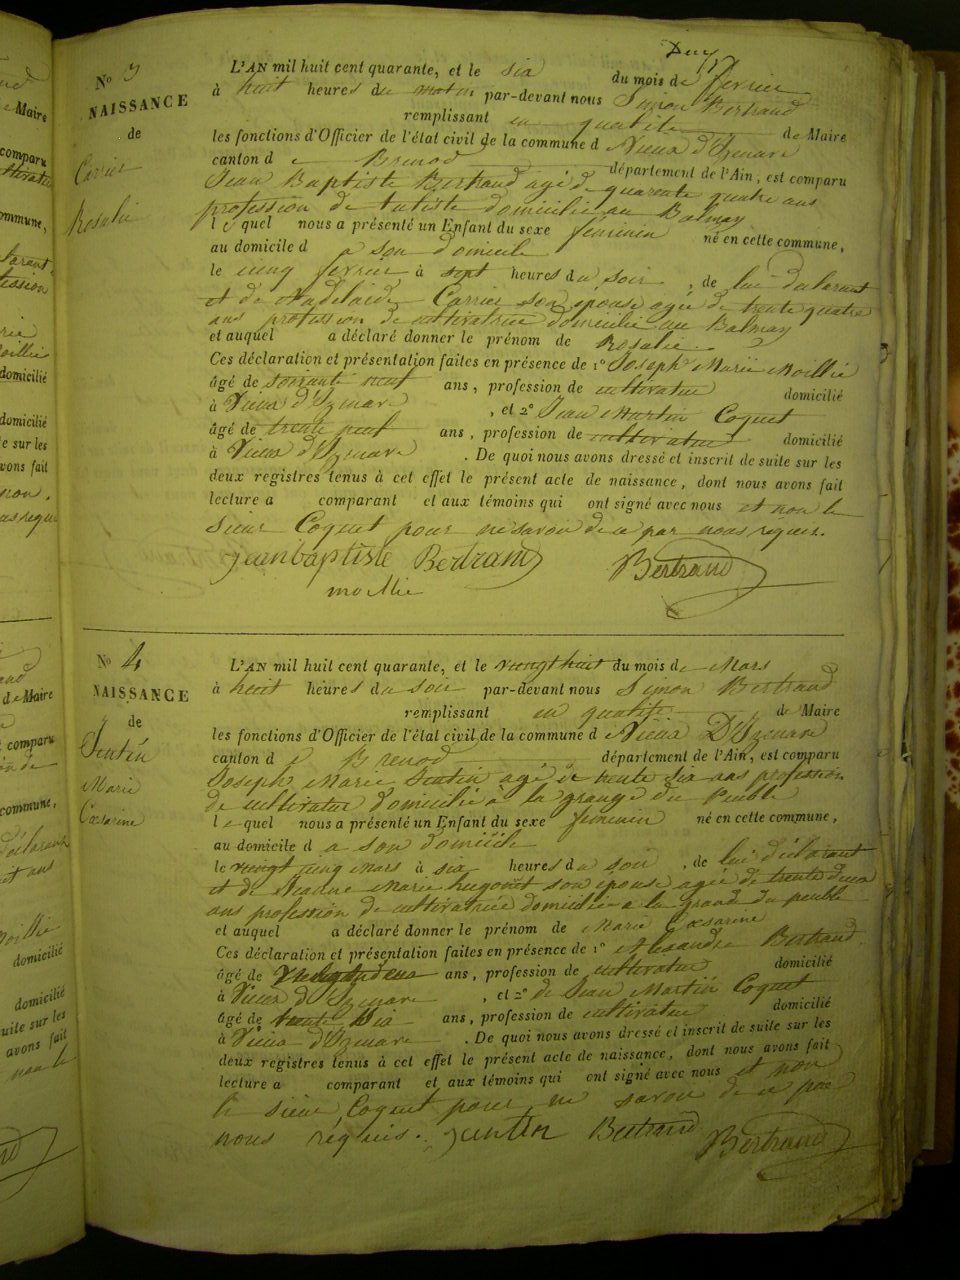 N° 3
NAISSANCE
de
Carrier
Rosalie
L'AN mil huit cent quarante, et le six du mois de fevrier
à huit heures du matin par-devant nous Simon Bertrand
remplissant en qualité de Maire
les fonctions d'Officier de l'état civil de la commune d Vieux d'Izenave
canton de Brenod département de l'Ain, est comparu
Jean Baptiste Bertrand agé de quarante quatre ans
profession de domicilié au Balmay
lequel nous a présenté un Enfant du sexe feminin né en cette commune,
au domicile d a son domicile
le cinq fevrier à sept heures du soir, de lui declarant
et de adelaide Carrier son épouse agée de trente quatre
ans profession de cultivatrice domicilié au Balmay
et auquel a déclaré donner le prénom de Rosalie
Ces déclaration et présentation faites en présence de 1° Joseph Marie Moillie
âgé de soixante neuf ans, profession de cultivateur domicilié
à Vieux d'Izenave, et 2° Jean Martin Coquet
âgé de trente neuf ans, profession de cultivateur domicilié
à Vieux d'Izenave. De quoi nous avons dressé et inscrit de suite sur les
deux registres tenus à cet effet le présent acte de naissance, dont nous avons fait
lecture a comparant et aux témoins qui ont signé avec nous et non le
sieur Coquet pour ne savoir de ce par nous requis.
jeanbaptiste Bertrand Bertrand
moillie
N° 4
NAISSANCE
de
Jentin
Marie
Cesarine
L'AN mil huit cent quarante, et le vingt huit du mois de Mars
à huit heures du soir par-devant nous Simon Bertrand
remplissant en qualité de Maire
les fonctions d'Officier de l'état civil de la commune d Vieux D'Izenave
canton d e Brenod département de l'Ain, est comparu
Joseph Marie Jentin agé de trente six ans profession
de cultivateur domicilié à la grange du Peuble
lequel nous a présenté un Enfant du sexe feminin né en cette commune,
au domicile d a son domicile
le vingt cinq mars à six heures du soir, de lui déclarant
et de Jeanne Marie hugonet son épouse agée de trente deux
ans profession de cultivatrice domicilié a la grand du peuble
et auquel a déclaré donner le prénom de Marie Cesarine
Ces déclaration et présentation faites en présence de 1° Alexandre Bertrand
âgé de ans, profession de cultivateur domicilié
à Vieux d'Izenave, et 2° de Jean Martin Coquet
âgé de trente six ans, profession de cultivateur domicilié
à Vieux d'Izenave. De quoi nous avons dressé et inscrit de suite sur les
deux registres tenus à cet effet le présent acte de naissance, dont nous avons fait
lecture a comparant et aux témoins qui ont signé avec nous et non
le sieur Coquet pour ne savoir de ce par
nous requis. jentin Bertrand Bertrand